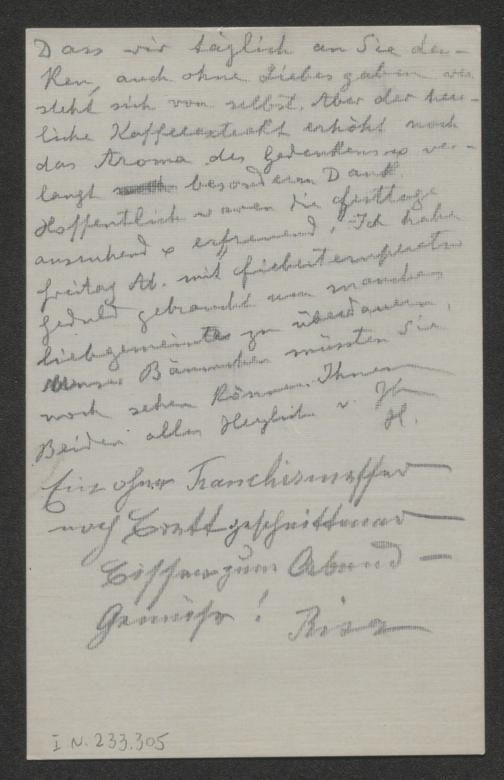 Dass wir täglich an Sie den-
ken, auch ohne Liebesgaben ver
steht sich von selbst. Aber der herr-
liche Kaffeeextrakt erhöht noch
das Aroma des Gedenkens & ver-
langt besonderen Dank.
Hoffentlich waren die Festtage
ausruhend & erfreuend! Ich habe
freitag Ab. mit Fiebertemperatur
Geduld gebraucht um manches
liebgemeinte zu überdauern.
Unser Bäumchen müssten Sie
noch sehen können. Ihnen
Beiden alles Herzliche v. Ih
H.
Ein ohne Tranchiermesser
noch Brett geschnittener
Bissen zum Abend-
Gemüse!
I N. 233.305